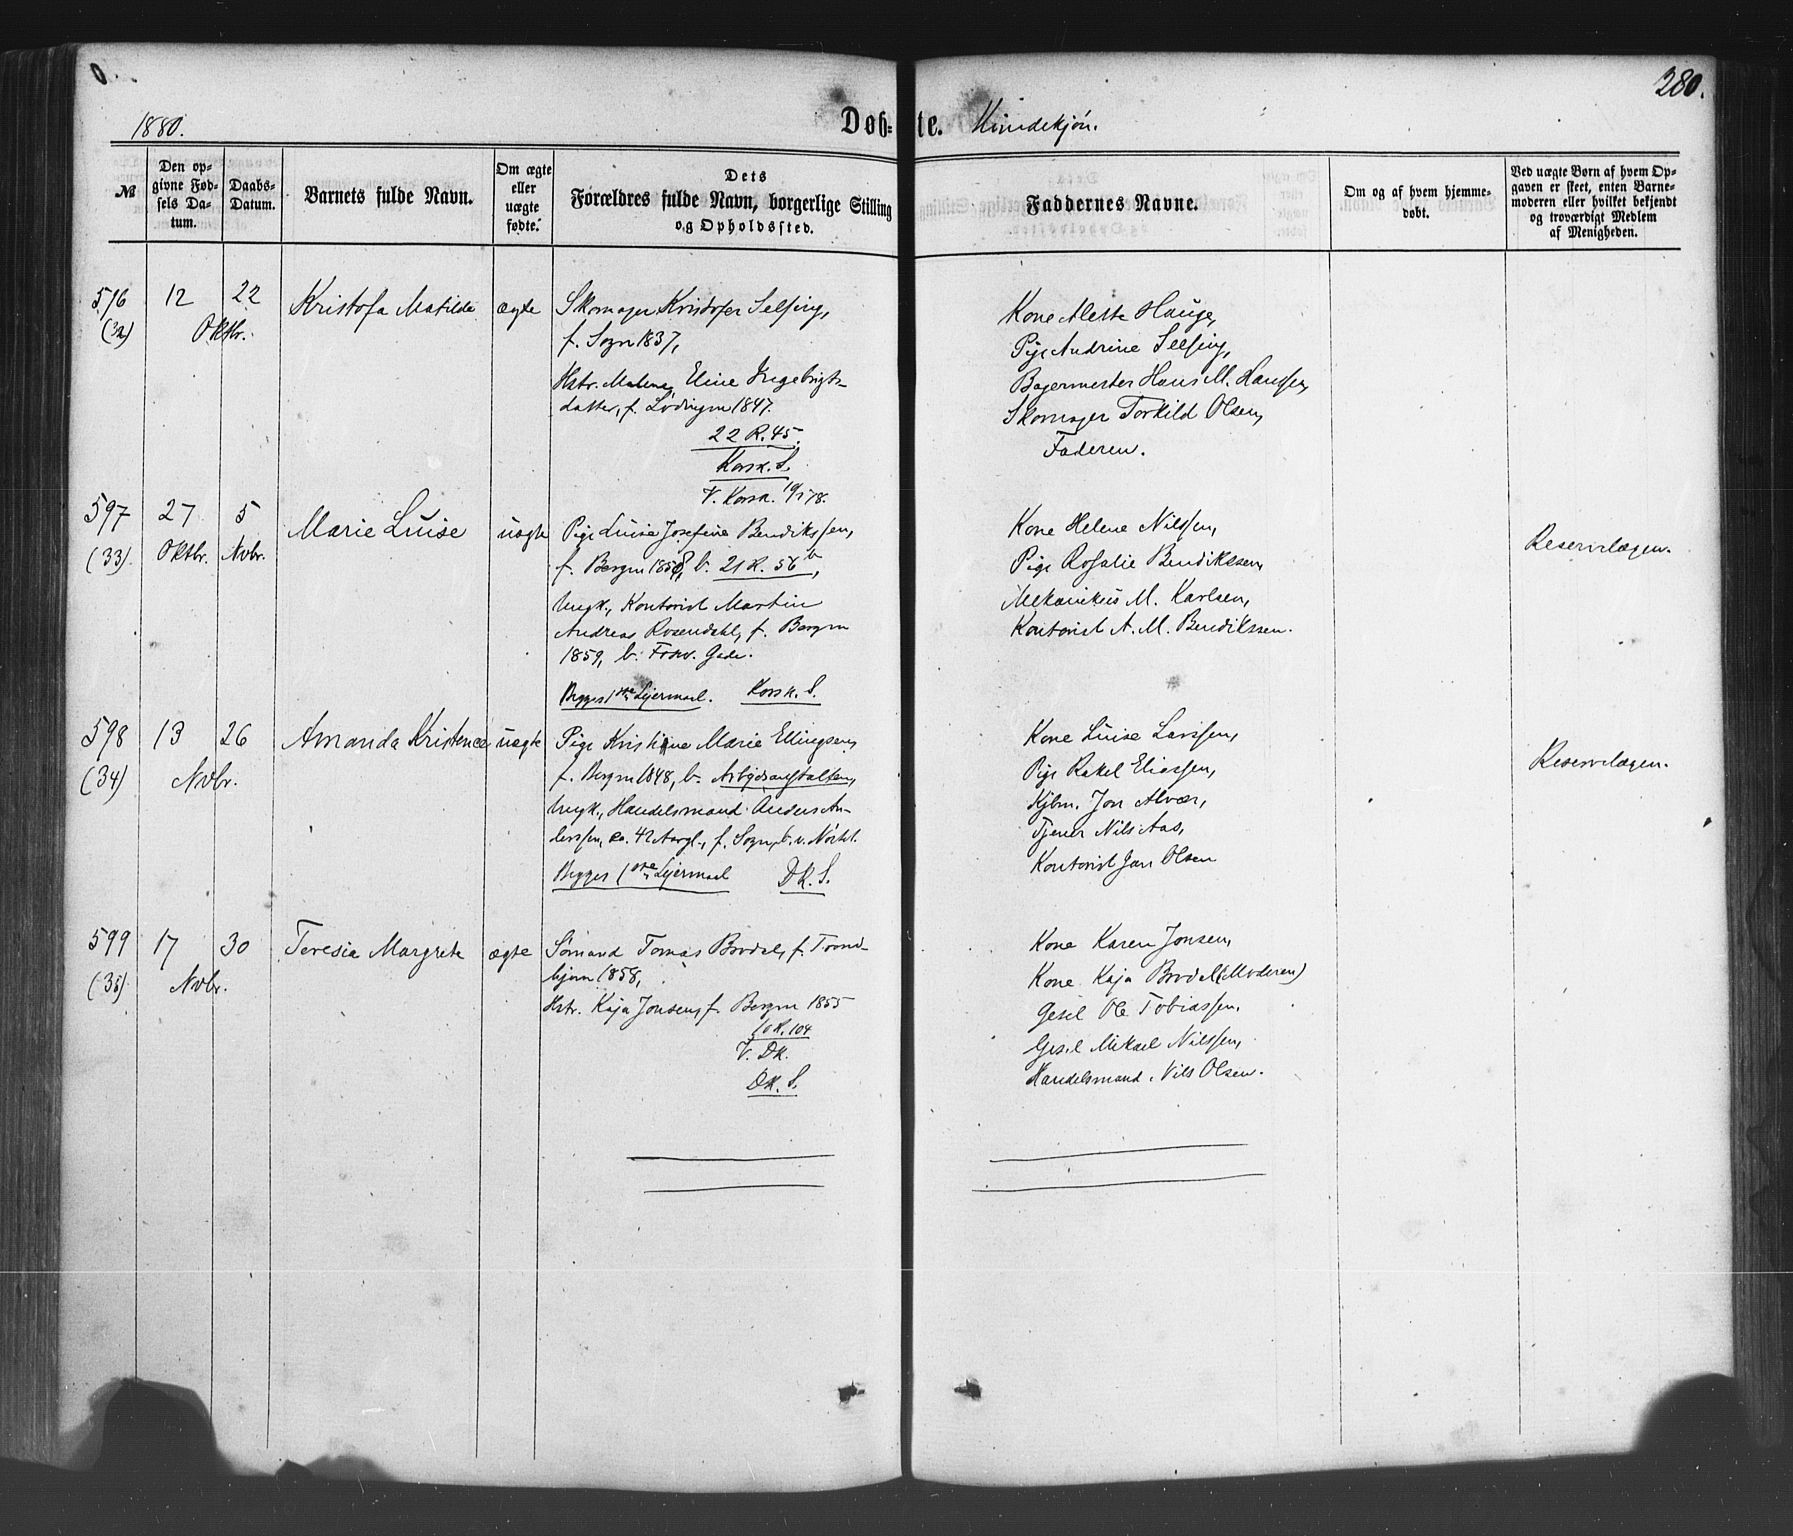 280.
1880.
Døb- te. Kvindekjøn.
№
Den op-
givne Fød-
sels Da-
tum.
Daabs-
Datum.
Barnets fulde Navn.
Om ægte
eller
uægte
fødte.
Dets
Forældres fulde Navn, borgerlige Stilling
og Opholdssted.
Faddernes Navne.
Om og af hvem hjemme-
døbt.
Ved uægte Børn af hvem Op-
gaven er skeet, enten Barne-
moderen eller hvilket bekjendt
og troværdigt Medlem
af Menigheden.
596
(32)
12
22
Oktbr.
Kristofa Matilde
ægte
Skomager Kristofer Selseng,
f. Sogn 1837,
Hstr. Malena Eline Ingebrigts-
datter, f. Lødingen 1847.
22 R. 45.
Korsk. S.
V. Korsk.
Kone Alette Hauge,
Pige Andrine Selseng,
Bagermester Hans M. Hanssen,
Skomager Torkild Olsen,
Faderen.
597
(33)
27
Oktbr.
5
Nvbr.
Marie Luise
uægte
Pige Luise Josefine Bendikssen,
f. Bergen 1858, b. 21 R. 56 b,
Ungk., Kontorist Martin
Andreas Rosendahl, f. Bergen
1859, b. Fosw. Gade.
Begges 1ste Lejermaal. Korsk. S.
Kone Helene Nilssen,
Pige Rosalie Bendikssen,
Mekanikus M. Karlsen,
Kontorist A. M. Bendikssen.
Reservelægen.
598
(34)
13
26
Nvbr.
Amanda Kristence
uægte
Pige Kristine Marie Ellingsen,
f. Bergen 1848, b. Arbejdsanstalten,
Ungk., Handelsmand Anders An-
derssen, ca. 42 Aargl., f. Sogn, b. v. Nøstet.
Begges 1ste Lejermaal DK. S.
Kone Luise Larssen,
Pige Rakel Eliassen,
Kjbm. Jon Alvær,
Tjener Nils Aas,
Kontorist Jan Olsen
Reservelægen.
599
(35)
17
30
Nvbr.
Teresia Margrete
ægte
Sømand Tomas Brodal, f. Trond-
hjem 1858,
Hstr. Kaja Jonsen, f. Bergen 1855
10 R. 104
V. DK.
DK. S.
Kone Karen Jonsen,
Kone Kaja Brodal (Moderen)
Gesel Ole Tobiassen,
Gesel Mikael Nilssen,
Handelsmand Nils Olsen.